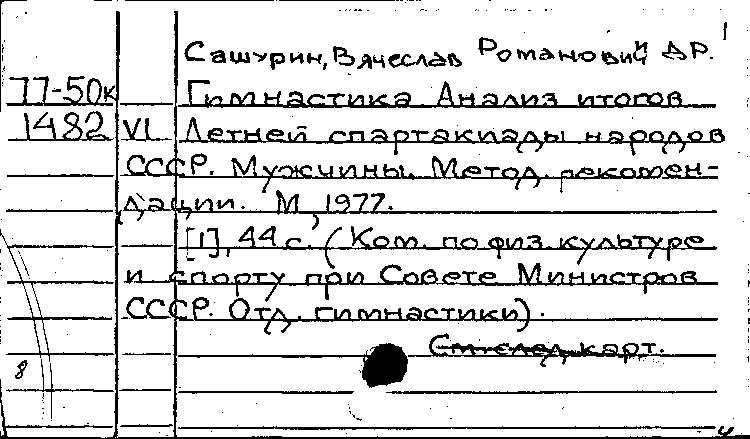 1
Сашурин, Вячеслав Романович и др.
77-50к Гимнастика Анализ итогов
1482 VI Летней спартакиады народов
СССР. Мужчины. Метод. рекомен-
дации. М, 1977.
[1], 44 с. (Ком. по физ. культуре
и спорту при Совете Министров
СССР. Отд. гимнастики).
См. след. карт.
8